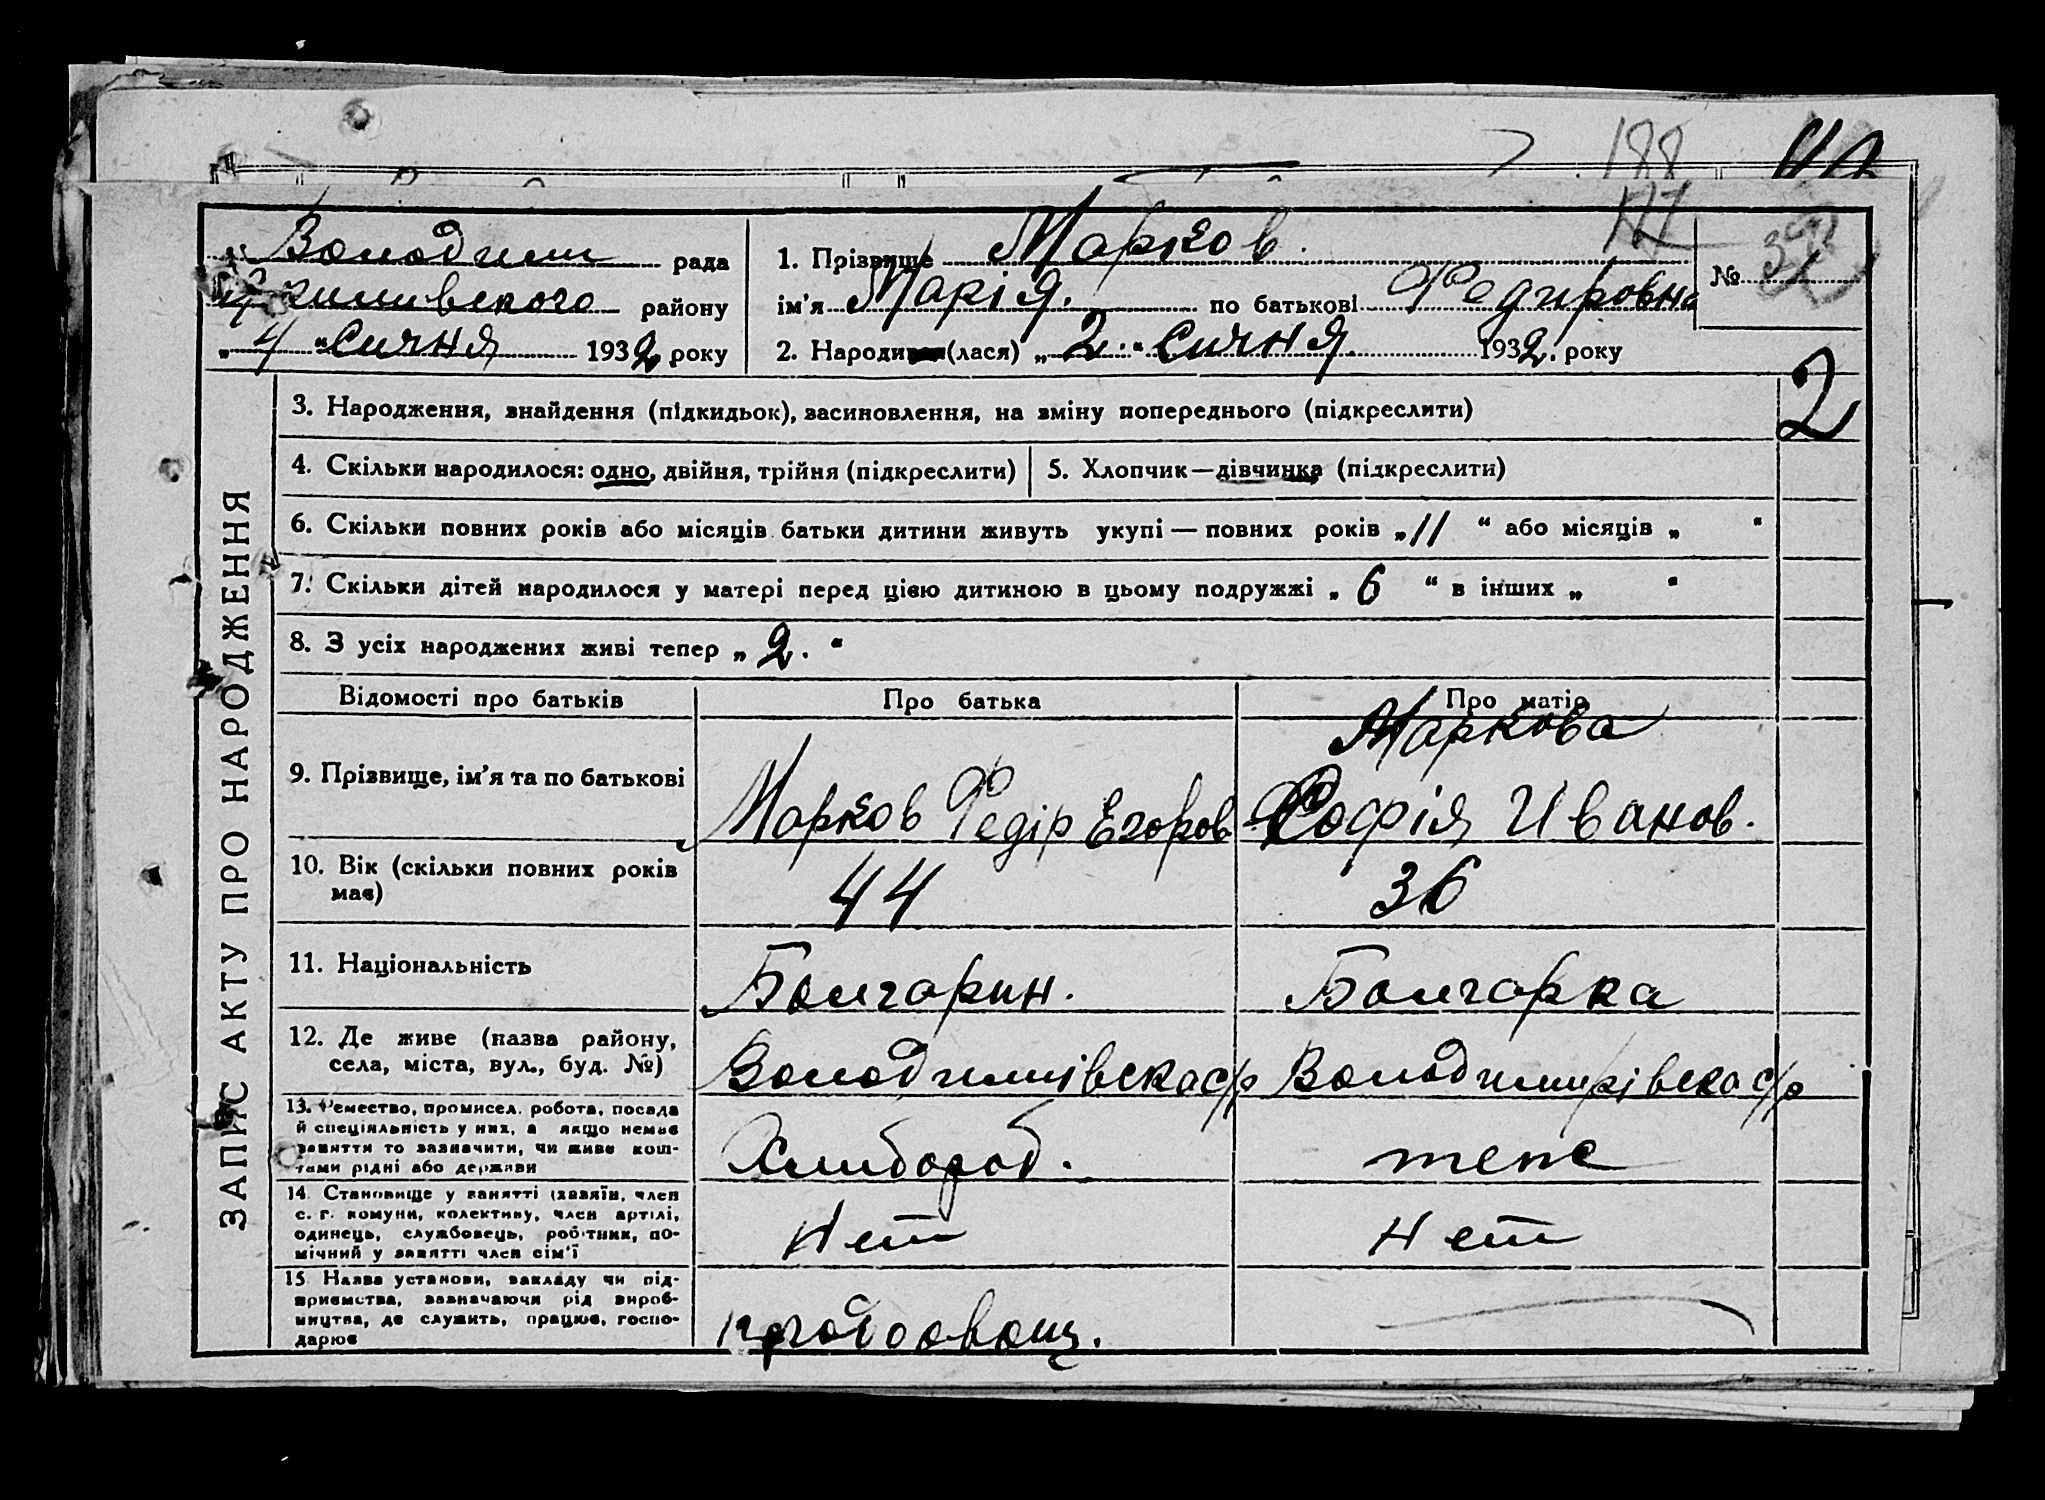 188
177
Володим рада
району
„4“ Січня 1932 року
1. Прізвище Марков.
ім’я Марія. по батькові Федировна
№
2. Народився(лася) „2.“ Сичня. 1932. року
2
3. Народження, знайдення (підкидьок), засиновлення, на зміну попереднього (підкреслити)
4. Скільки народилося: одно, двійня, трійня (підкреслити)
5. Хлопчик—дівчинка (підкреслити)
6. Скільки повних років або місяців батьки дитини живуть укупі — повних років „11“ або місяців „ “
7. Скільки дітей народилося у матері перед цією дитиною в цьому подружжі „6“ в інших „ “
8. З усіх народжених живі тепер „2.“
ЗАПИС АКТУ ПРО НАРОДЖЕННЯ
Відомості про батьків
Про батька
Про матір
9. Прізвище, ім’я та по батькові
Марков Федір Егоров
Маркова
Софія Иванов.
10. Вік (скільки повних років
має)
44
36
11. Національність
Болгарин.
Болгарка
12. Де живе (назва району,
села, міста, вул., буд. №)
Володимиівска с/р
Володимирівска с/р
13. Ремество, промисел. робота, посада
й спеціяльність у них, а якщо немає
заняття то зазначити, чи живе кош-
тами рідні або держави
Хлибороб.
теж
14. Становище у занятті (хазяїн, член
с.-г. комуни, колективу, член артілі,
одинець, службовець, робітник, по-
мічний у занятті член сім’ї
Нет
Нет
15. Назва установи, закладу чи під-
приємства, зазначаючи рід вироб-
ництва, де служить, працює, госпо-
дарює